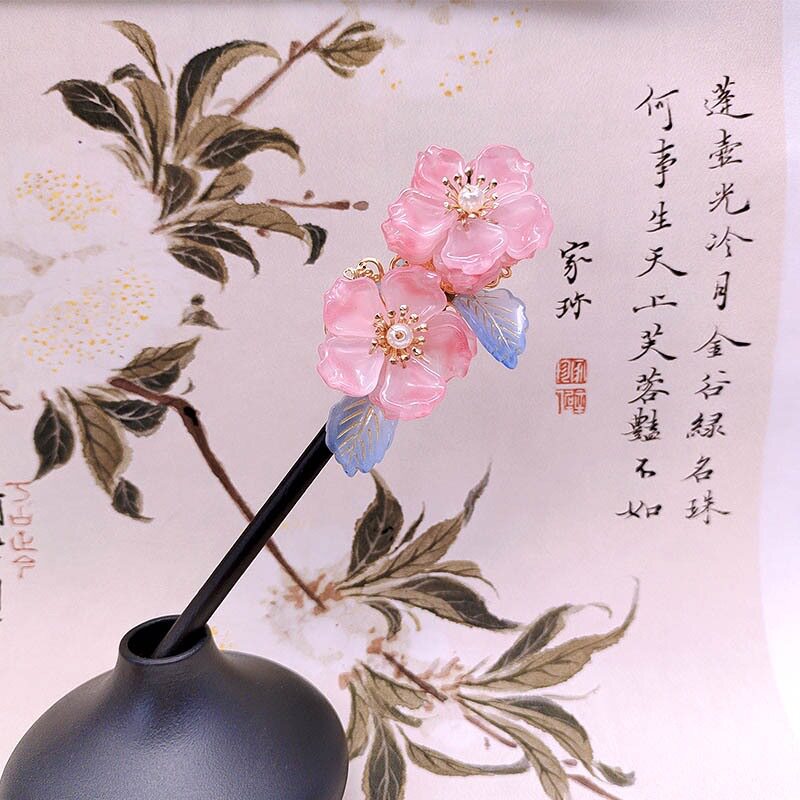 蓬壺光冷月金谷綠名珠
何事生天上芙蓉豔不如
家珍